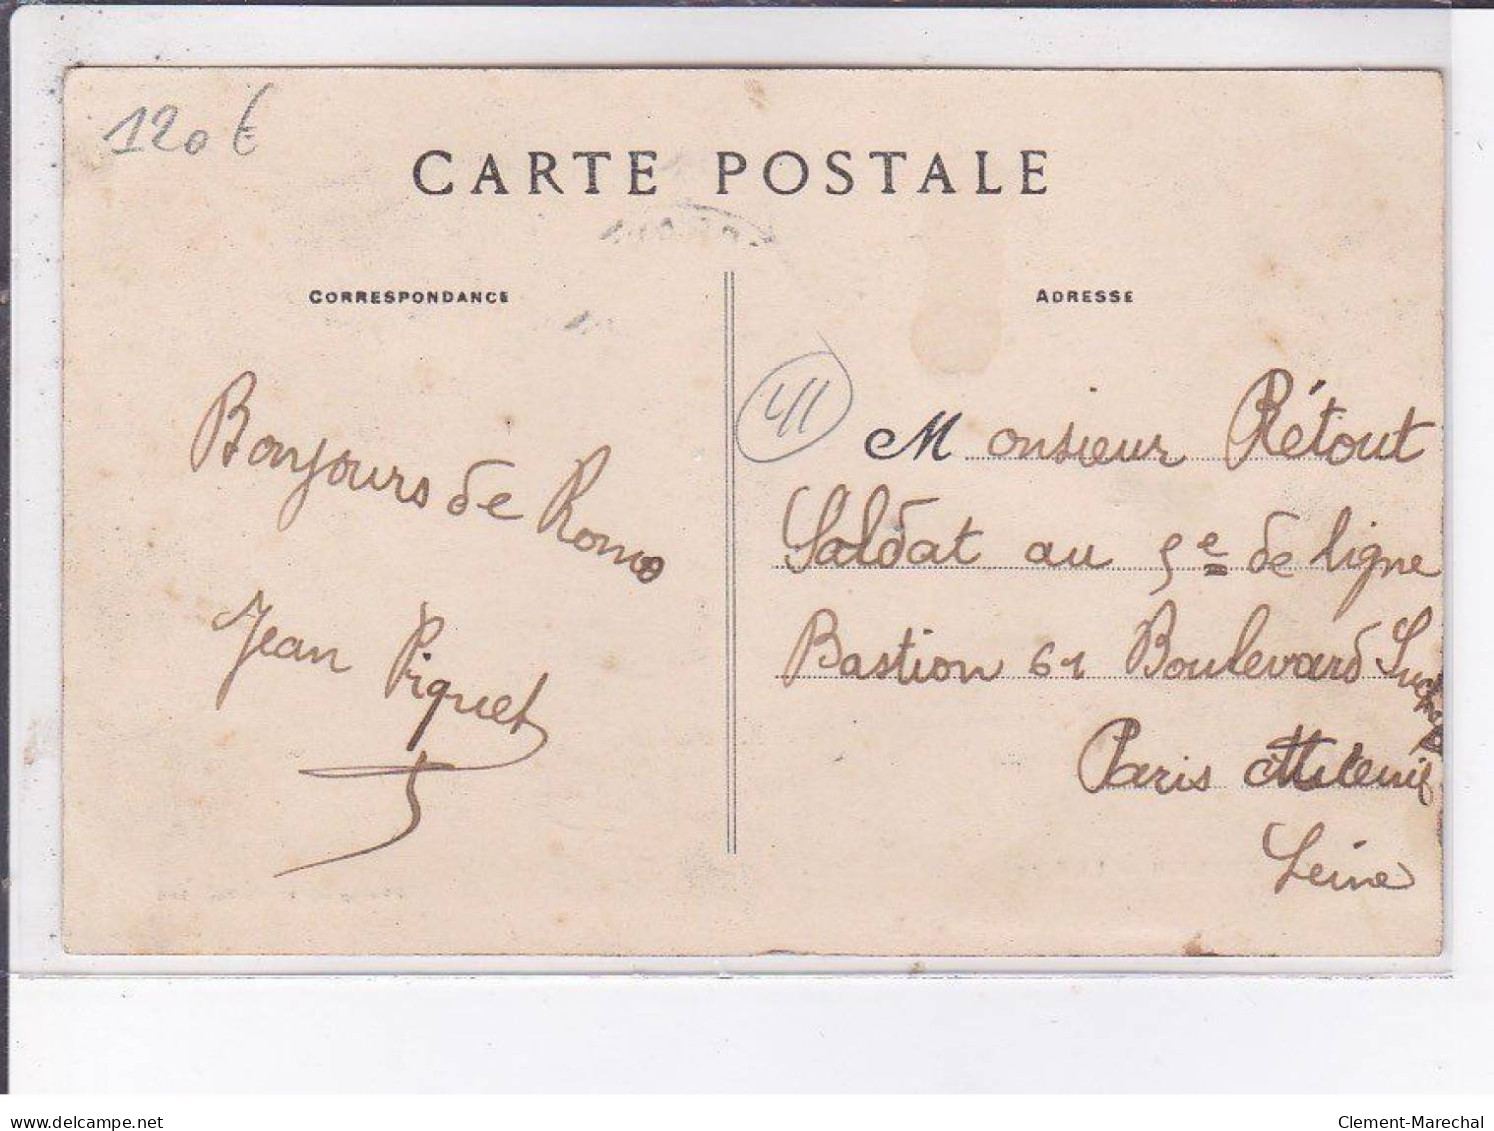 120€
CARTE POSTALE
CORRESPONDANCE
Bonjours de Romo
Jean Piquet
ADRESSE
41
Monsieur Rétout
Soldat au 5e de ligne
Bastion 61 Boulevard
Paris
Seine
www.delcampe.net
Clement-Marechal